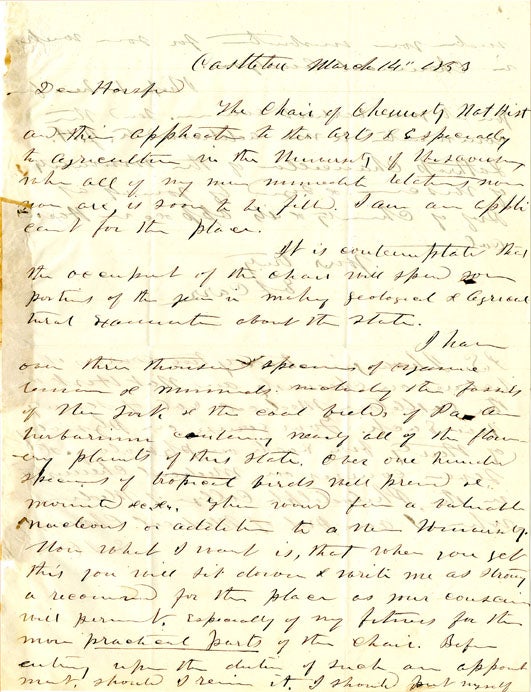 Castleton March 14" 1853
Dr Horsford
The Chair of Chemistry Nat Hist
and their application to the Arts & Especially
to Agriculture in the University of Wisconsin,
where all of my more immediate relations now
now are, is soon to be filled. I am an appli
cant for the place.
It is contemplated that
the occupant of the chair will spend some
portion of the year in making geological & Agricul
tural examination about the State.
I have
over three thousand specimens of organic
remains & minerals including the fossils
of New York & the coal fields of Pa. An
herbarium containing nearly all of the flower
ing plants of this State. Over one hundred
specimens of tropical birds well preserved &
mounted &c &c. These would form a valuable
nucleous or addition to a New University.
Now what I want is, that when you get
this you will sit down & write me as strong
a recommend for the place as your conscience
will permit, especially of my fitness for the
more practical parts of the chair. Before
entering upon the duties of such an appoint
ment, should I receive it, I should put myself